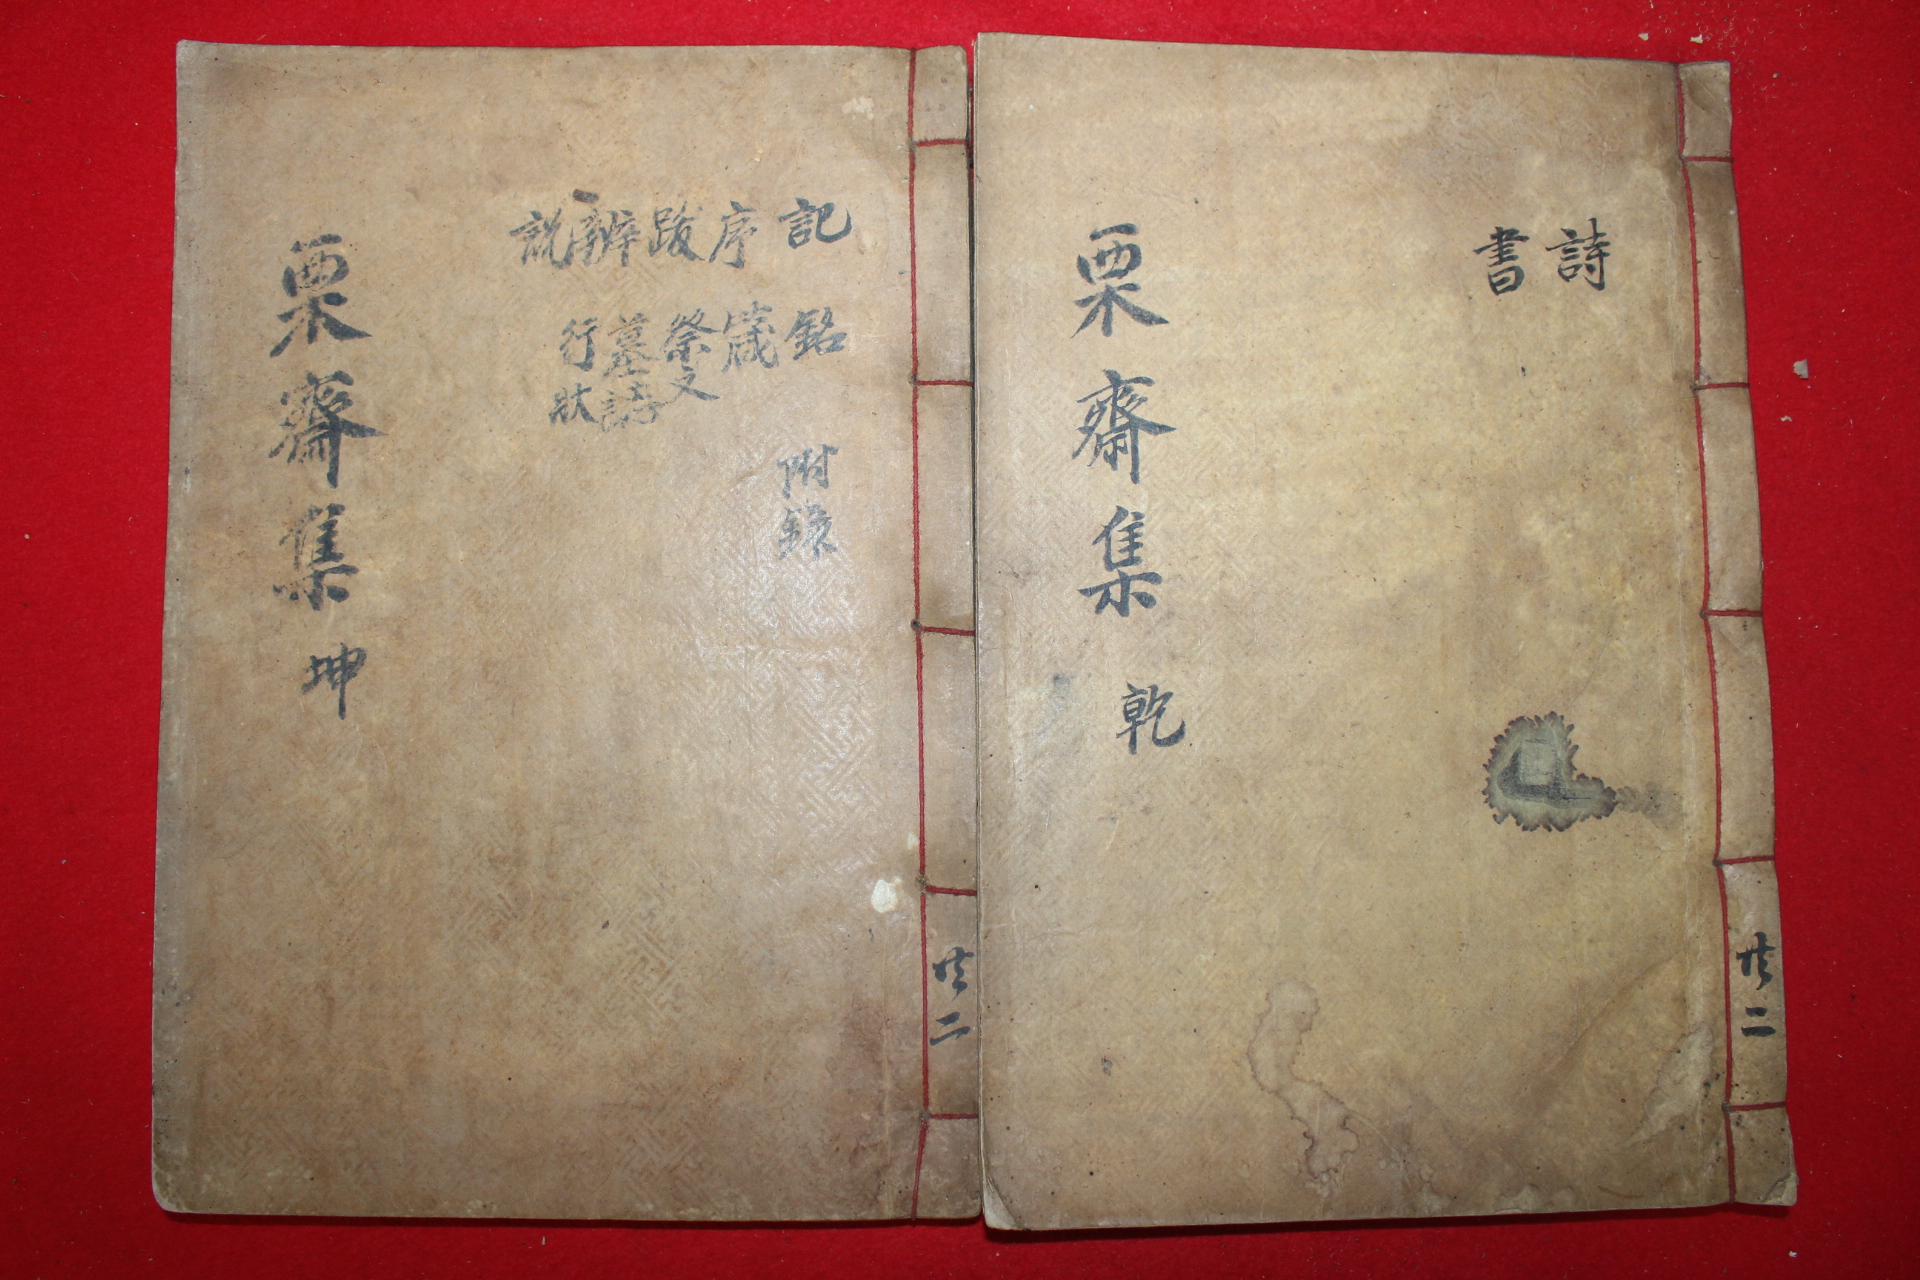 詩
書
栗齋集 乾
共二
記 銘 附錄
序 箴
跋 祭文
辨 墓誌
說 行狀
栗齋集 坤
共二